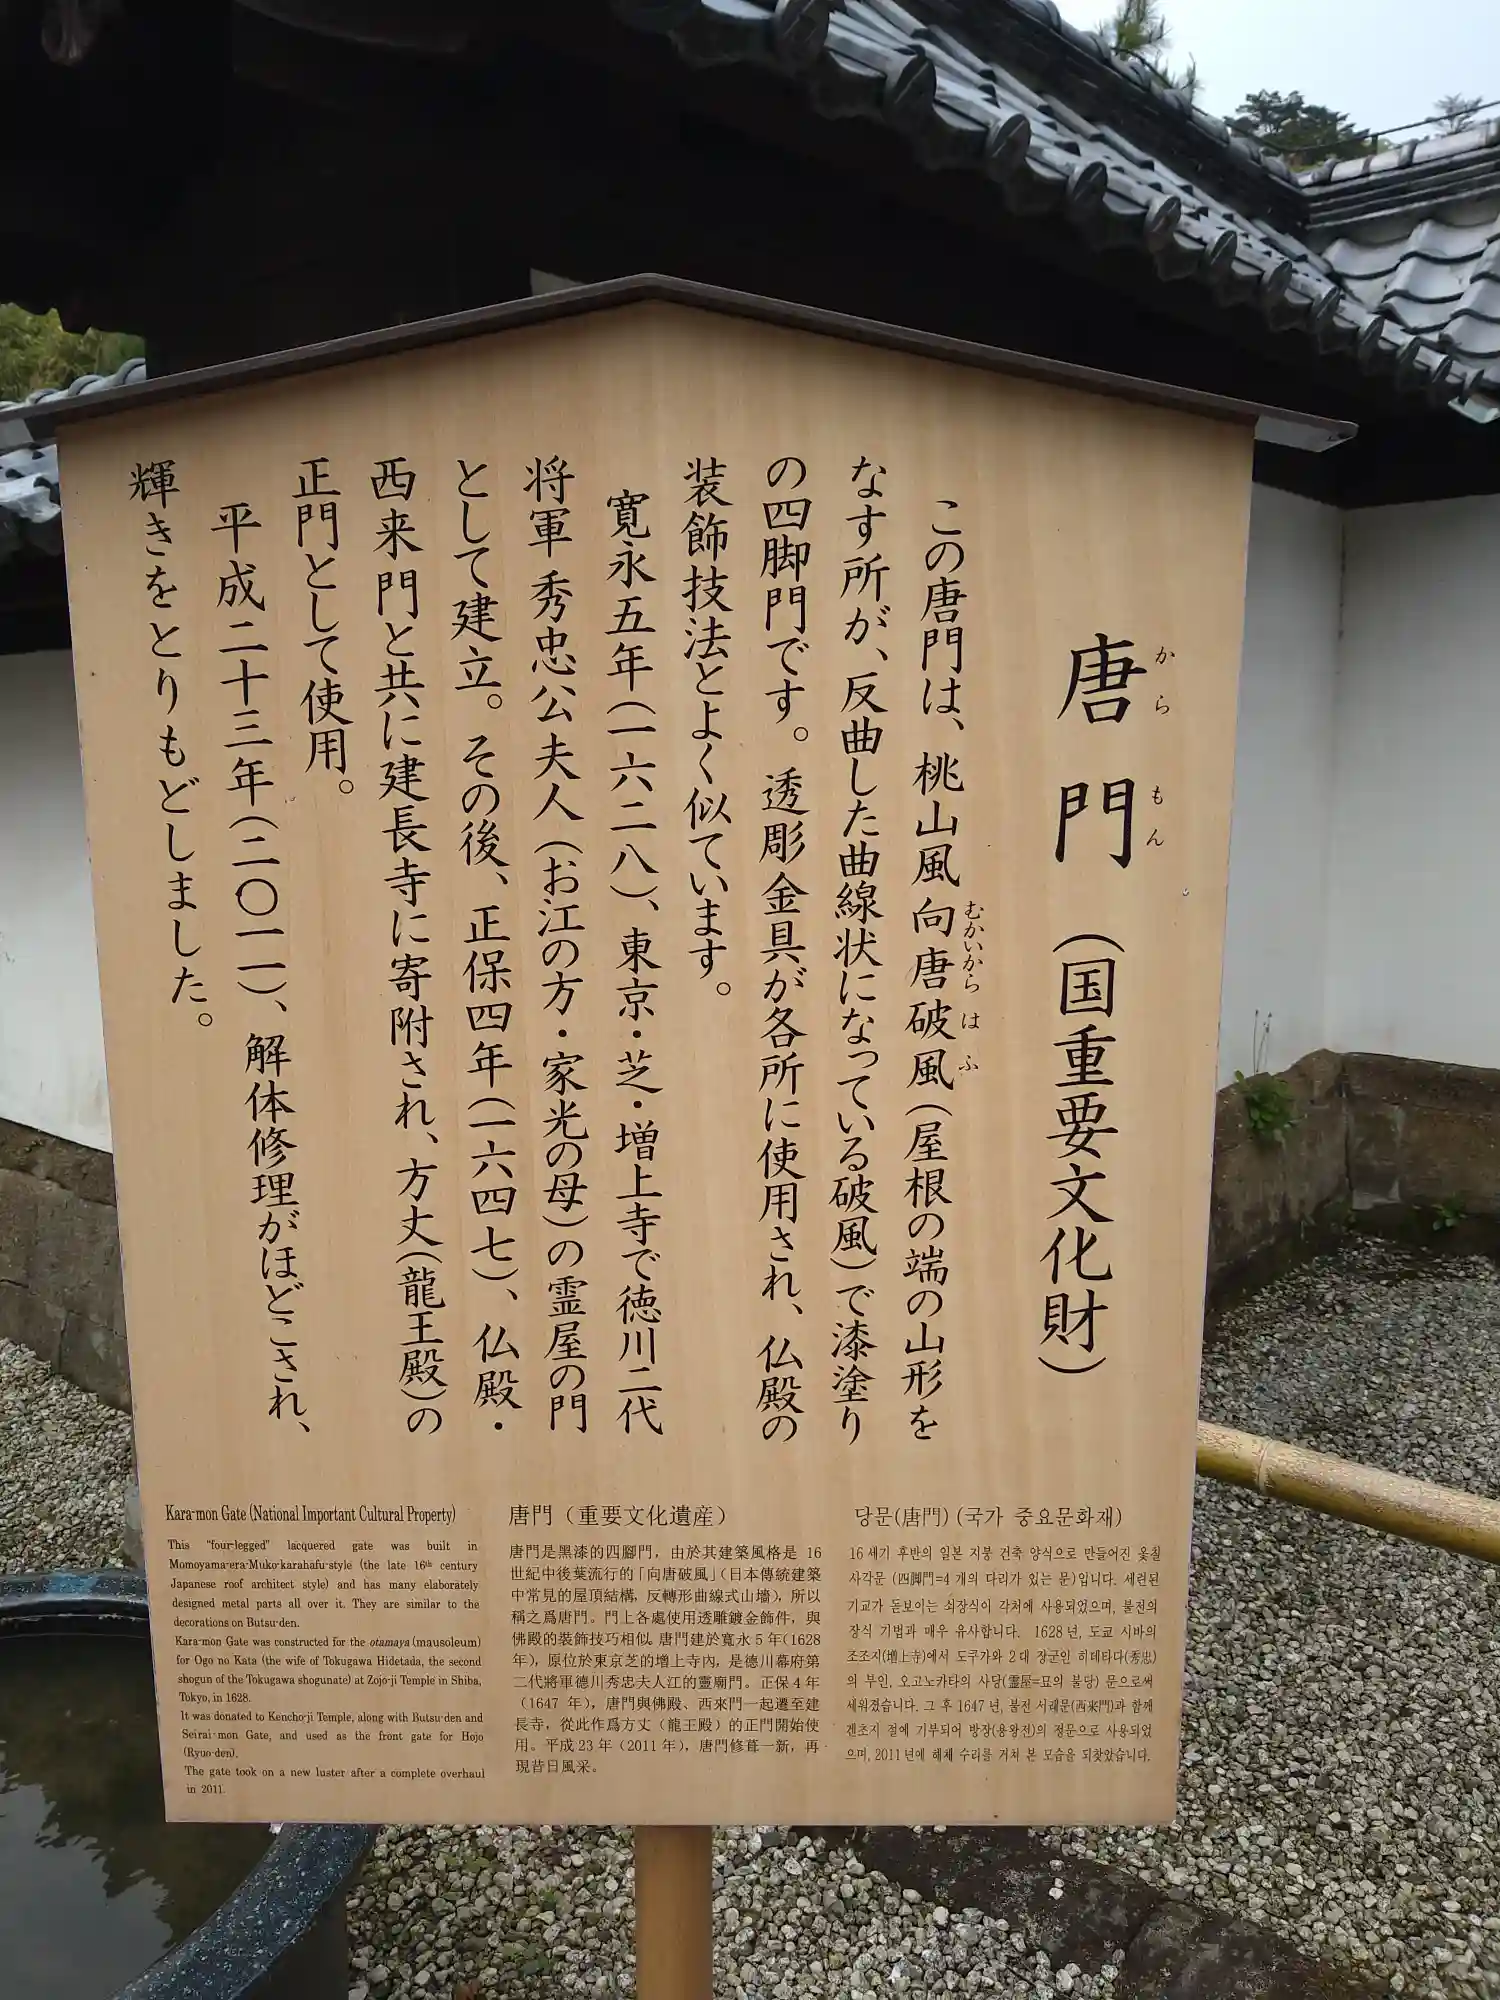 唐門(国重要文化財)
からもん
この唐門は、桃山風向唐破風(屋根の端の山形を
むかいからはふ
なす所が、反曲した曲線状になっている破風)で漆塗り
の四脚門です。透彫金具が各所に使用され、仏殿の
装飾技法とよく似ています。
寛永五年(一六二八)、東京・芝・増上寺で徳川二代
将軍秀忠公夫人(お江の方・家光の母)の霊屋の門
として建立。その後、正保四年(一六四七)、仏殿・
西来門と共に建長寺に寄附され、方丈(龍王殿)の
正門として使用。
平成二十三年(二〇一一)、解体修理がほどこされ、
輝きをとりもどしました。
Kara-mon Gate (National Important Cultural Property)
This "four-legged" lacquered gate was built in
Momoyama-era-Muko-karahafu-style (the late 16th century
Japanese roof architect style) and has many elaborately
designed metal parts all over it. They are similar to the
decorations on Butsu-den.
Kara-mon Gate was constructed for the otamaya (mausoleum)
for Ogo no Kata (the wife of Tokugawa Hidetada, the second
shogun of the Tokugawa shogunate) at Zojo-ji Temple in Shiba,
Tokyo, in 1628.
It was donated to Kencho-ji Temple, along with Butsu-den and
Seirai-mon Gate, and used as the front gate for Hojo
(Ryuo-den).
The gate took on a new luster after a complete overhaul
in 2011.
唐門（重要文化遺産）
唐門是黑漆的四腳門，由於其建築風格是 16
世紀中後葉流行的「向唐破風」（日本傳統建築
中常見的屋頂結構，反轉形曲線式山墻），所以
稱之爲唐門。門上各處使用透雕鍍金飾件，與
佛殿的裝飾技巧相似。唐門建於寬永 5 年（1628
年），原位於東京芝的增上寺內，是德川幕府第
二代將軍德川秀忠夫人江的靈廟門。正保 4 年
（1647 年），唐門與佛殿、西來門一起遷至建
長寺，從此作爲方丈（龍王殿）的正門開始使
用。平成 23 年（2011 年），唐門修葺一新，再
現昔日風采。
당문(唐門) (국가 중요문화재)
16 세기 후반의 일본 지붕 건축 양식으로 만들어진 옻칠
사각문 (四脚門=4 개의 다리가 있는 문)입니다. 세련된
기교가 돋보이는 쇠장식이 각처에 사용되었으며, 불전의
장식 기법과 매우 유사합니다. 1628 년, 도쿄 시바의
조조지(增上寺)에서 도쿠가와 2 대 장군인 히데타다(秀忠)
의 부인, 오고노카타의 사당(靈屋=묘의 불당) 문으로써
세워졌습니다. 그 후 1647 년, 불전 서래문(西來門)과 함께
겐초지 절에 기부되어 방장(용왕전)의 정문으로 사용되었
으며, 2011 년에 해체 수리를 거쳐 본 모습을 되찾았습니다.